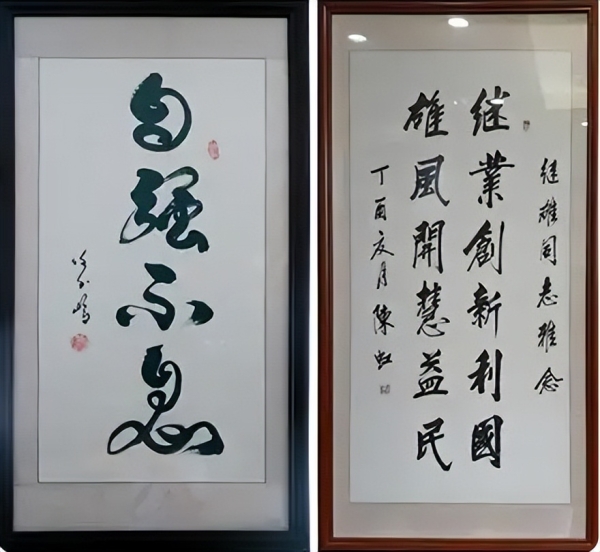 自强不息
继雄同志雅念
继業創新利國
雄風開慧益民
丁酉夏月陳虹